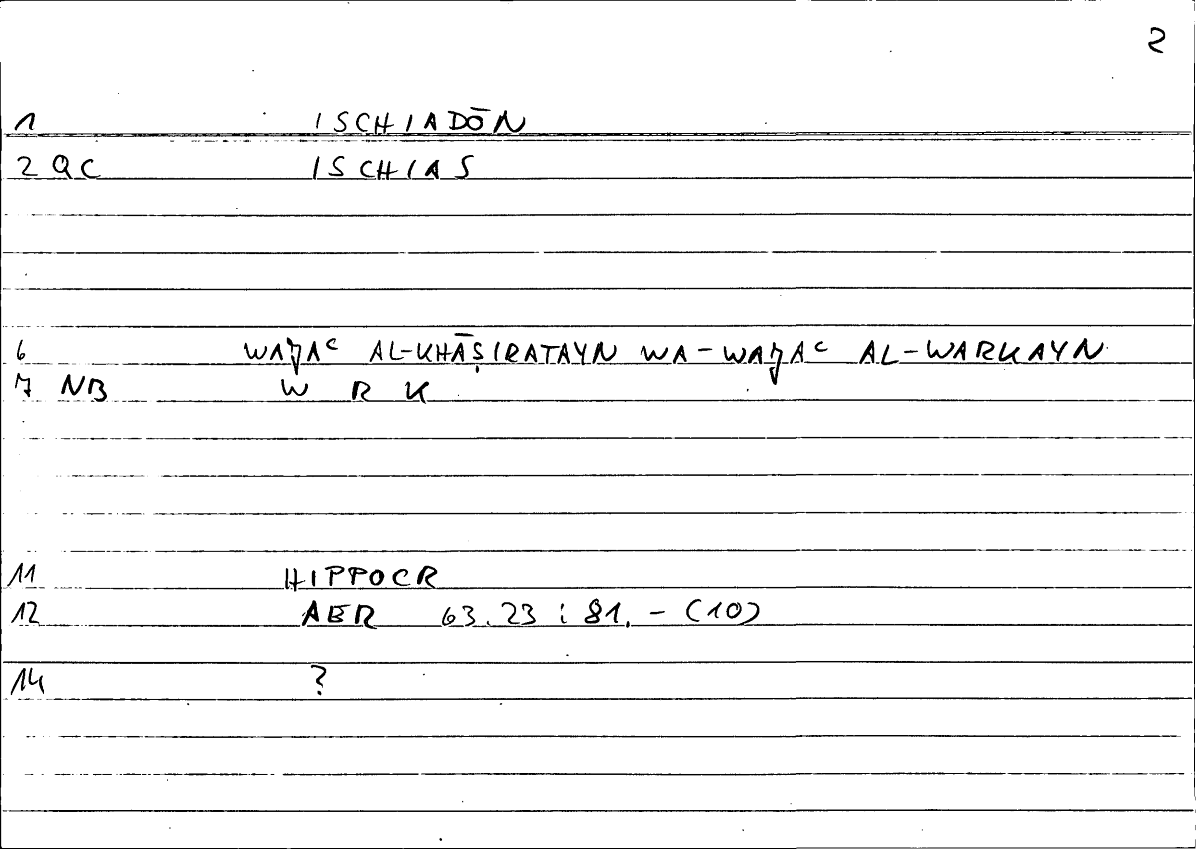 2
1 ISCHIADŌN
2 QC ISCHIAS
6 WAJAᶜ AL-KHĀṢIRATAYN WA-WAJAᶜ AL-WARKAYN
7 NB W R K
11 HIPPOCR
12 AER 63.23 ; 81. - (10)
14 ?